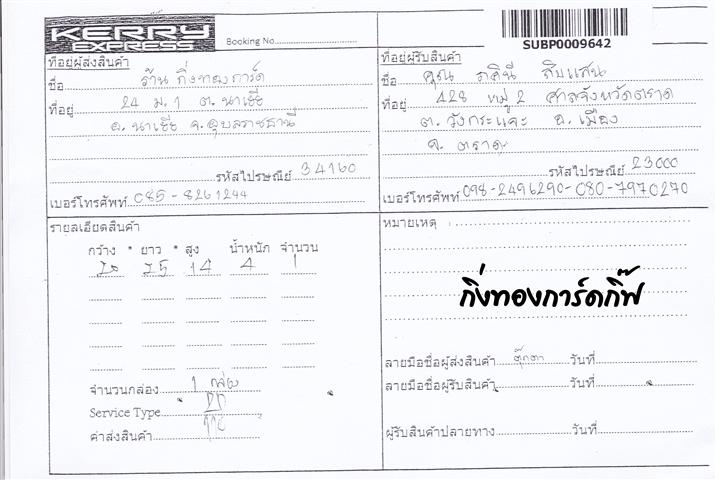 KERRY
EXPRESS
Booking No.
SUBP0009642
ที่อยู่ผู้ส่งสินค้า
ชื่อ ร้าน กิ่งทองการ์ด
ที่อยู่ 24 ม.1 ต. นาเยีย
อ. นาเยีย จ. อุบลราชธานี
รหัสไปรษณีย์ 34160
เบอร์โทรศัพท์ 085-8261244
ที่อยู่ผู้รับสินค้า
ชื่อ คุณ ภคินี สิบแสน
ที่อยู่ 428 หมู่ 2 ศาลจังหวัดตราด
ต. วังกระแจะ อ. เมือง
จ. ตราด
รหัสไปรษณีย์ 23000
เบอร์โทรศัพท์ 098-2496290-080-7970270
รายละเอียดสินค้า
กว้าง * ยาว * สูง น้ำหนัก จำนวน
14 4 1
จำนวนกล่อง 1 กล่อง
Service Type
ค่าส่งสินค้า
หมายเหตุ
กิ่งทองการ์ดกิ๊ฟ
ลายมือชื่อผู้ส่งสินค้า ตุ๊กตา วันที่
ลายมือชื่อผู้รับสินค้า วันที่
ผู้รับสินค้าปลายทาง วันที่